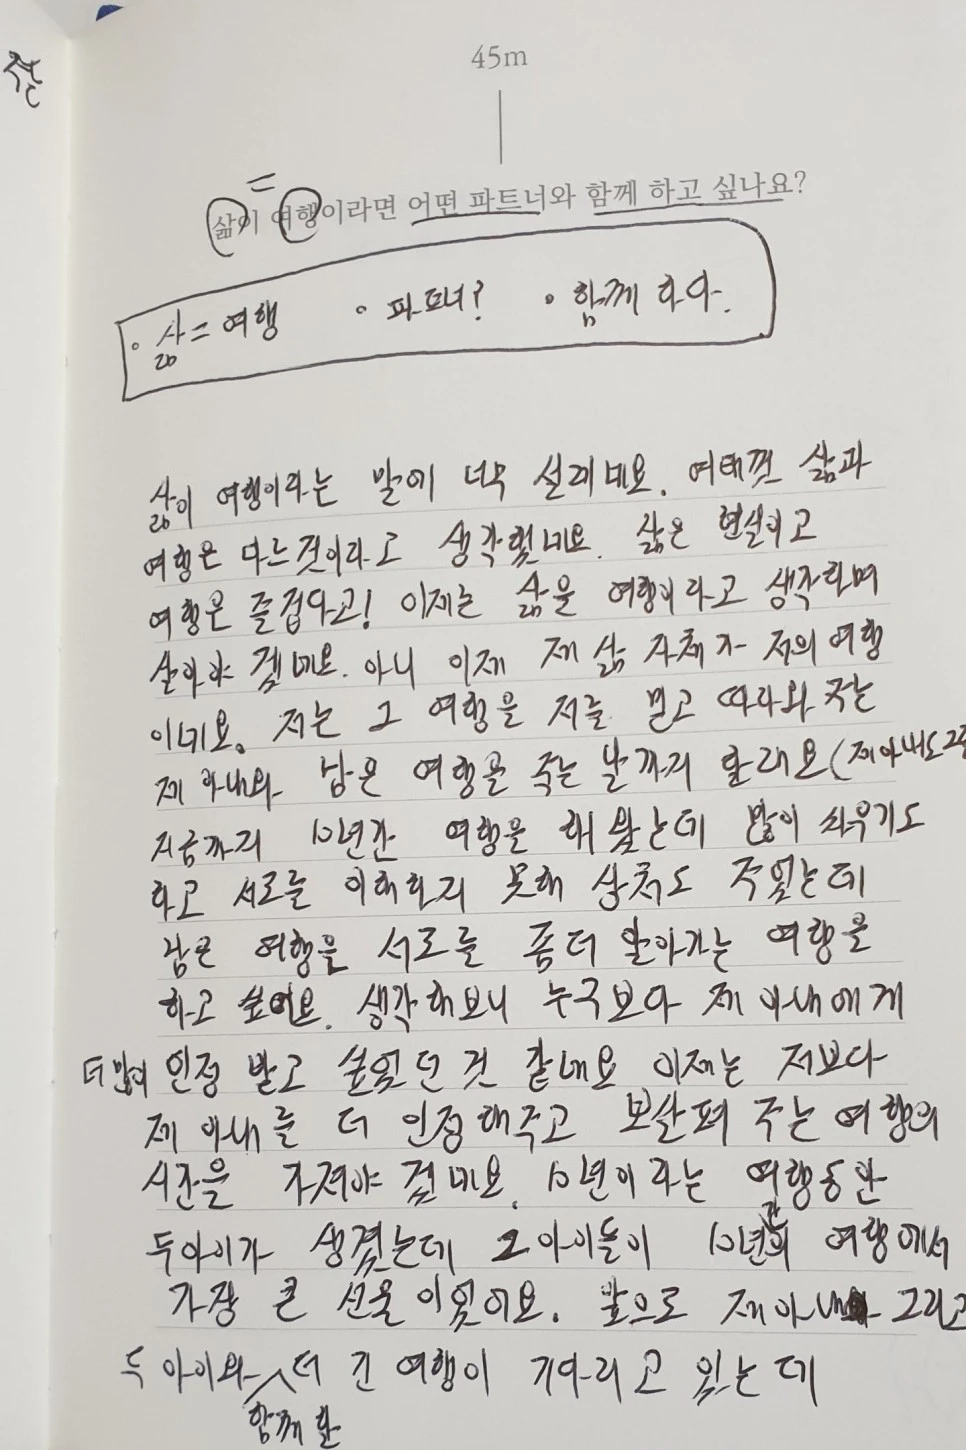 45m
삶이 여행이라면 어떤 파트너와 함께 하고 싶나요?
=
• 삶 = 여행 • 파트너? • 함께 하다.
삶이 여행이라는 말에 너무 설레네요. 여태껏 삶과
여행은 다느 것이라고 생각했네요. 삶은 현실이고
여행은 즐겁다고! 이제는 삶을 여행이라고 생각하며
살아야 겠네요. 아니 이제 제 삶 자체가 저의 여행
이네요. 저는 그 여행을 저를 믿고 따라와 주는
제 아내와 남은 여행을 죽는 날까지 할래요 (제 아내도
지금까지 10년간 여행을 해 왔는데 많이 싸우기도
하고 서로를 이해하지 못해 상처도 주었는데
남은 여행을 서로를 좀더 알아가는 여행을
하고 싶어요. 생각해보니 누구보다 제 아내에게
더 많이 인정 받고 싶었던 것 같네요 이제는 저보다
제 아내를 더 인정해주고 보살펴 주는 여행의
시간을 가져야 겠네요. 10년이라는 여행동안
두아이가 생겼는데 그아이들이 10년간의 여행에서
가장 큰 선물이었어요. 앞으로 제 아내와 그리고
두 아이와 함께 할 더 긴 여행이 기다리고 있는데